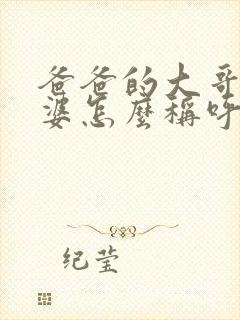 爸爸的大哥
婆怎麼稱呼
纪莹